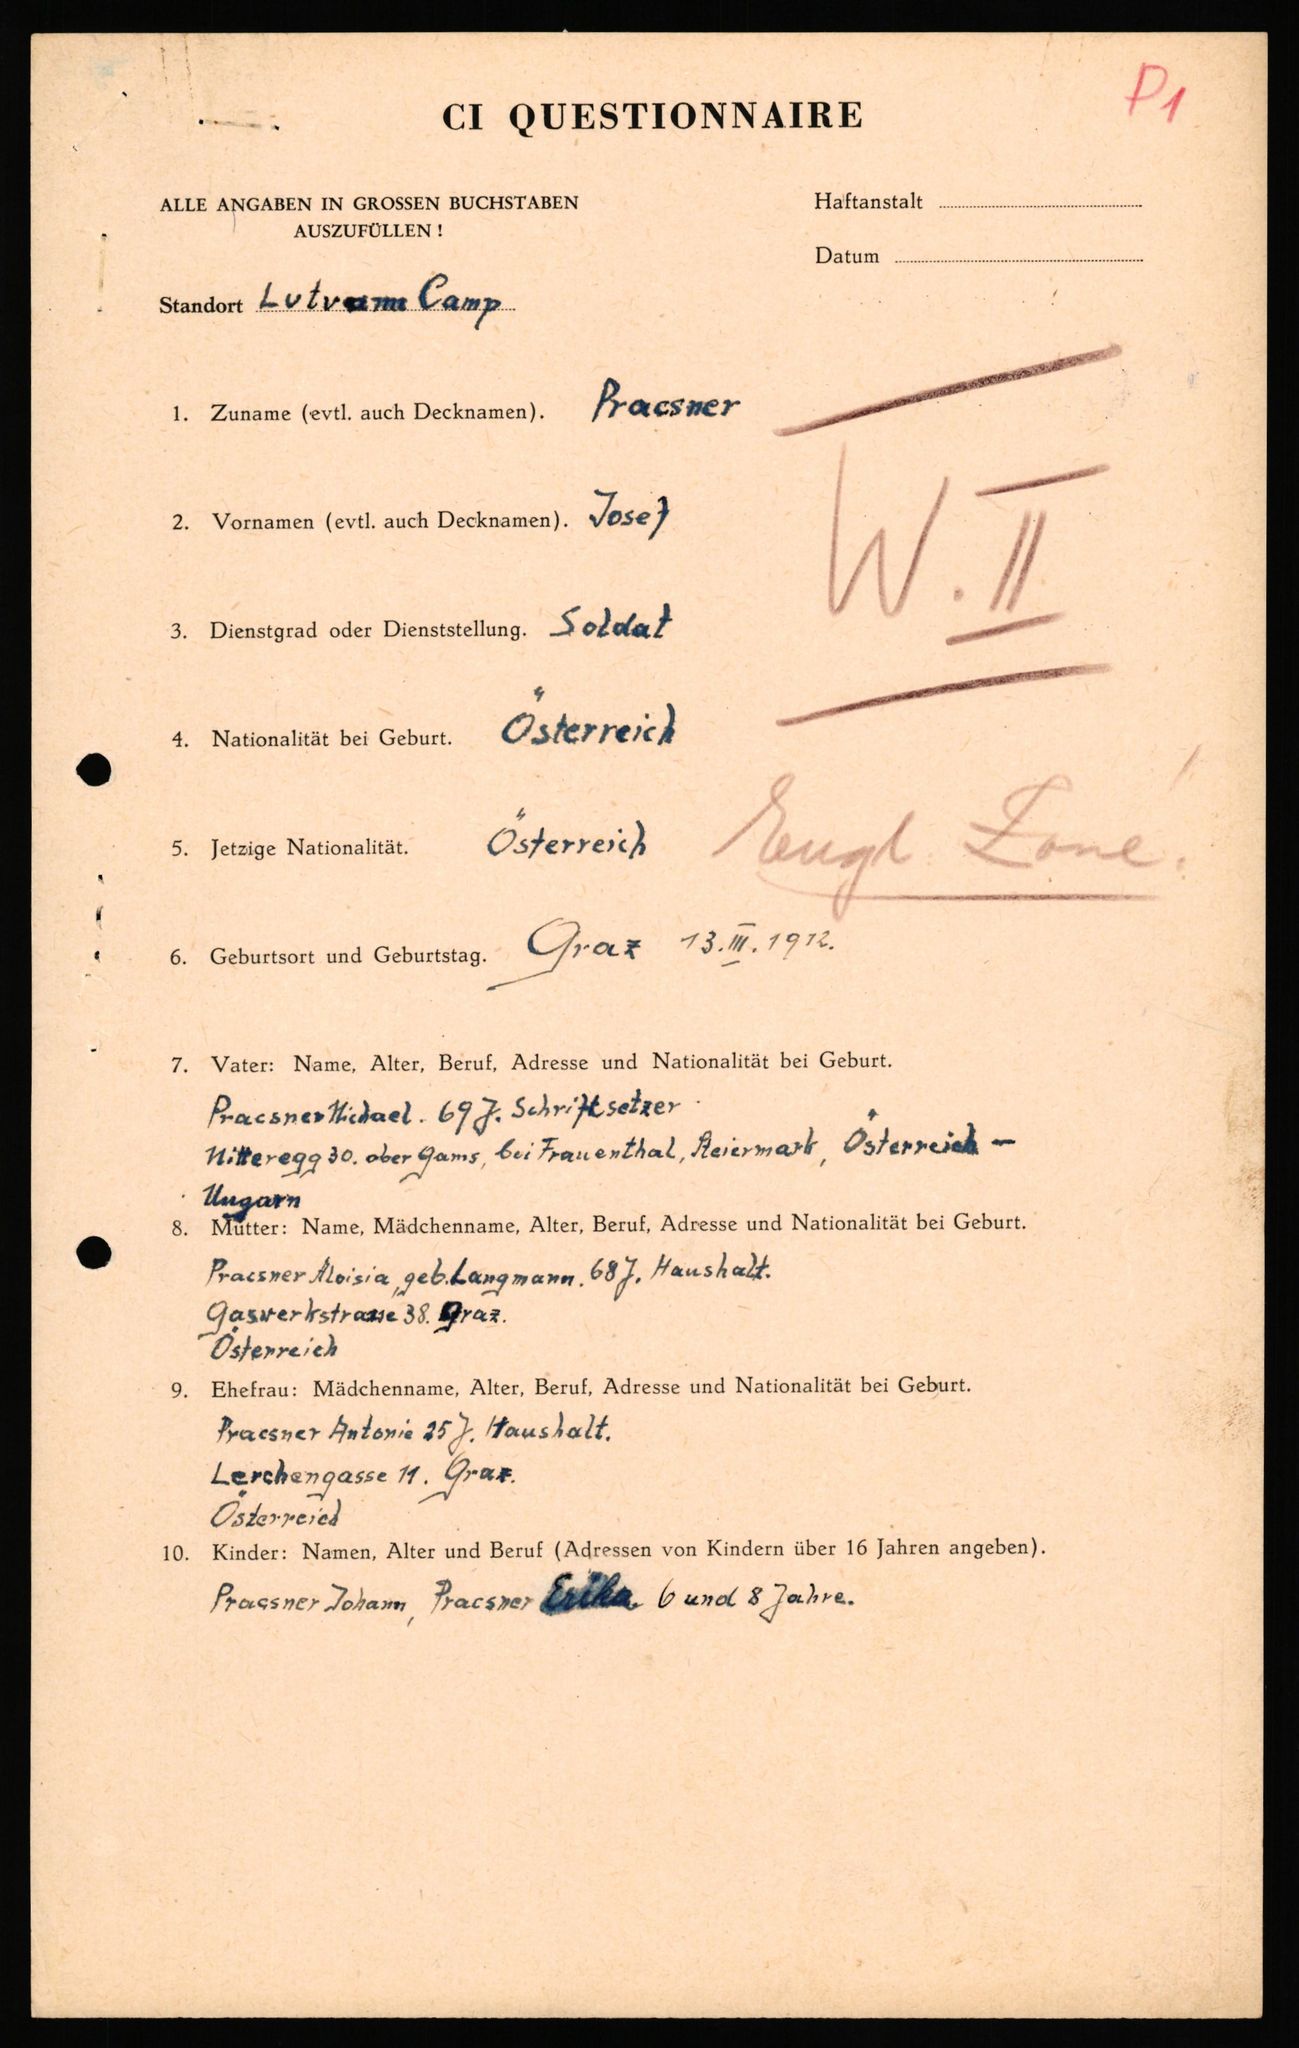 P1
CI QUESTIONNAIRE
ALLE ANGABEN IN GROSSEN BUCHSTABEN
AUSZUFÜLLEN!
Haftanstalt
Datum
Standort Lutvann Camp
1. Zuname (evtl. auch Decknamen). Pracsner
2. Vornamen (evtl. auch Decknamen). Josef
W. II
3. Dienstgrad oder Dienststellung. Soldat
4. Nationalität bei Geburt. Österreich
5. Jetzige Nationalität. Österreich
Engl. Zone!
6. Geburtsort und Geburtstag. Graz 13. III. 1912.
7. Vater: Name, Alter, Beruf, Adresse und Nationalität bei Geburt.
Pracsner Michael. 69 J. Schriftsetzer
Mitteregg 30. ober Gams, bei Frauenthal, Steiermark, Österreich –
Ungarn
8. Mutter: Name, Mädchenname, Alter, Beruf, Adresse und Nationalität bei Geburt.
Pracsner Aloisia, geb. Langmann. 68 J. Haushalt.
Gaswerkstrasse 38. Graz.
Österreich
9. Ehefrau: Mädchenname, Alter, Beruf, Adresse und Nationalität bei Geburt.
Pracsner Antonie 25 J. Haushalt.
Lerchengasse 11. Graz.
Österreich
10. Kinder: Namen, Alter und Beruf (Adressen von Kindern über 16 Jahren angeben).
Pracsner Johann, Pracsner Erika 6 und 8 Jahre.